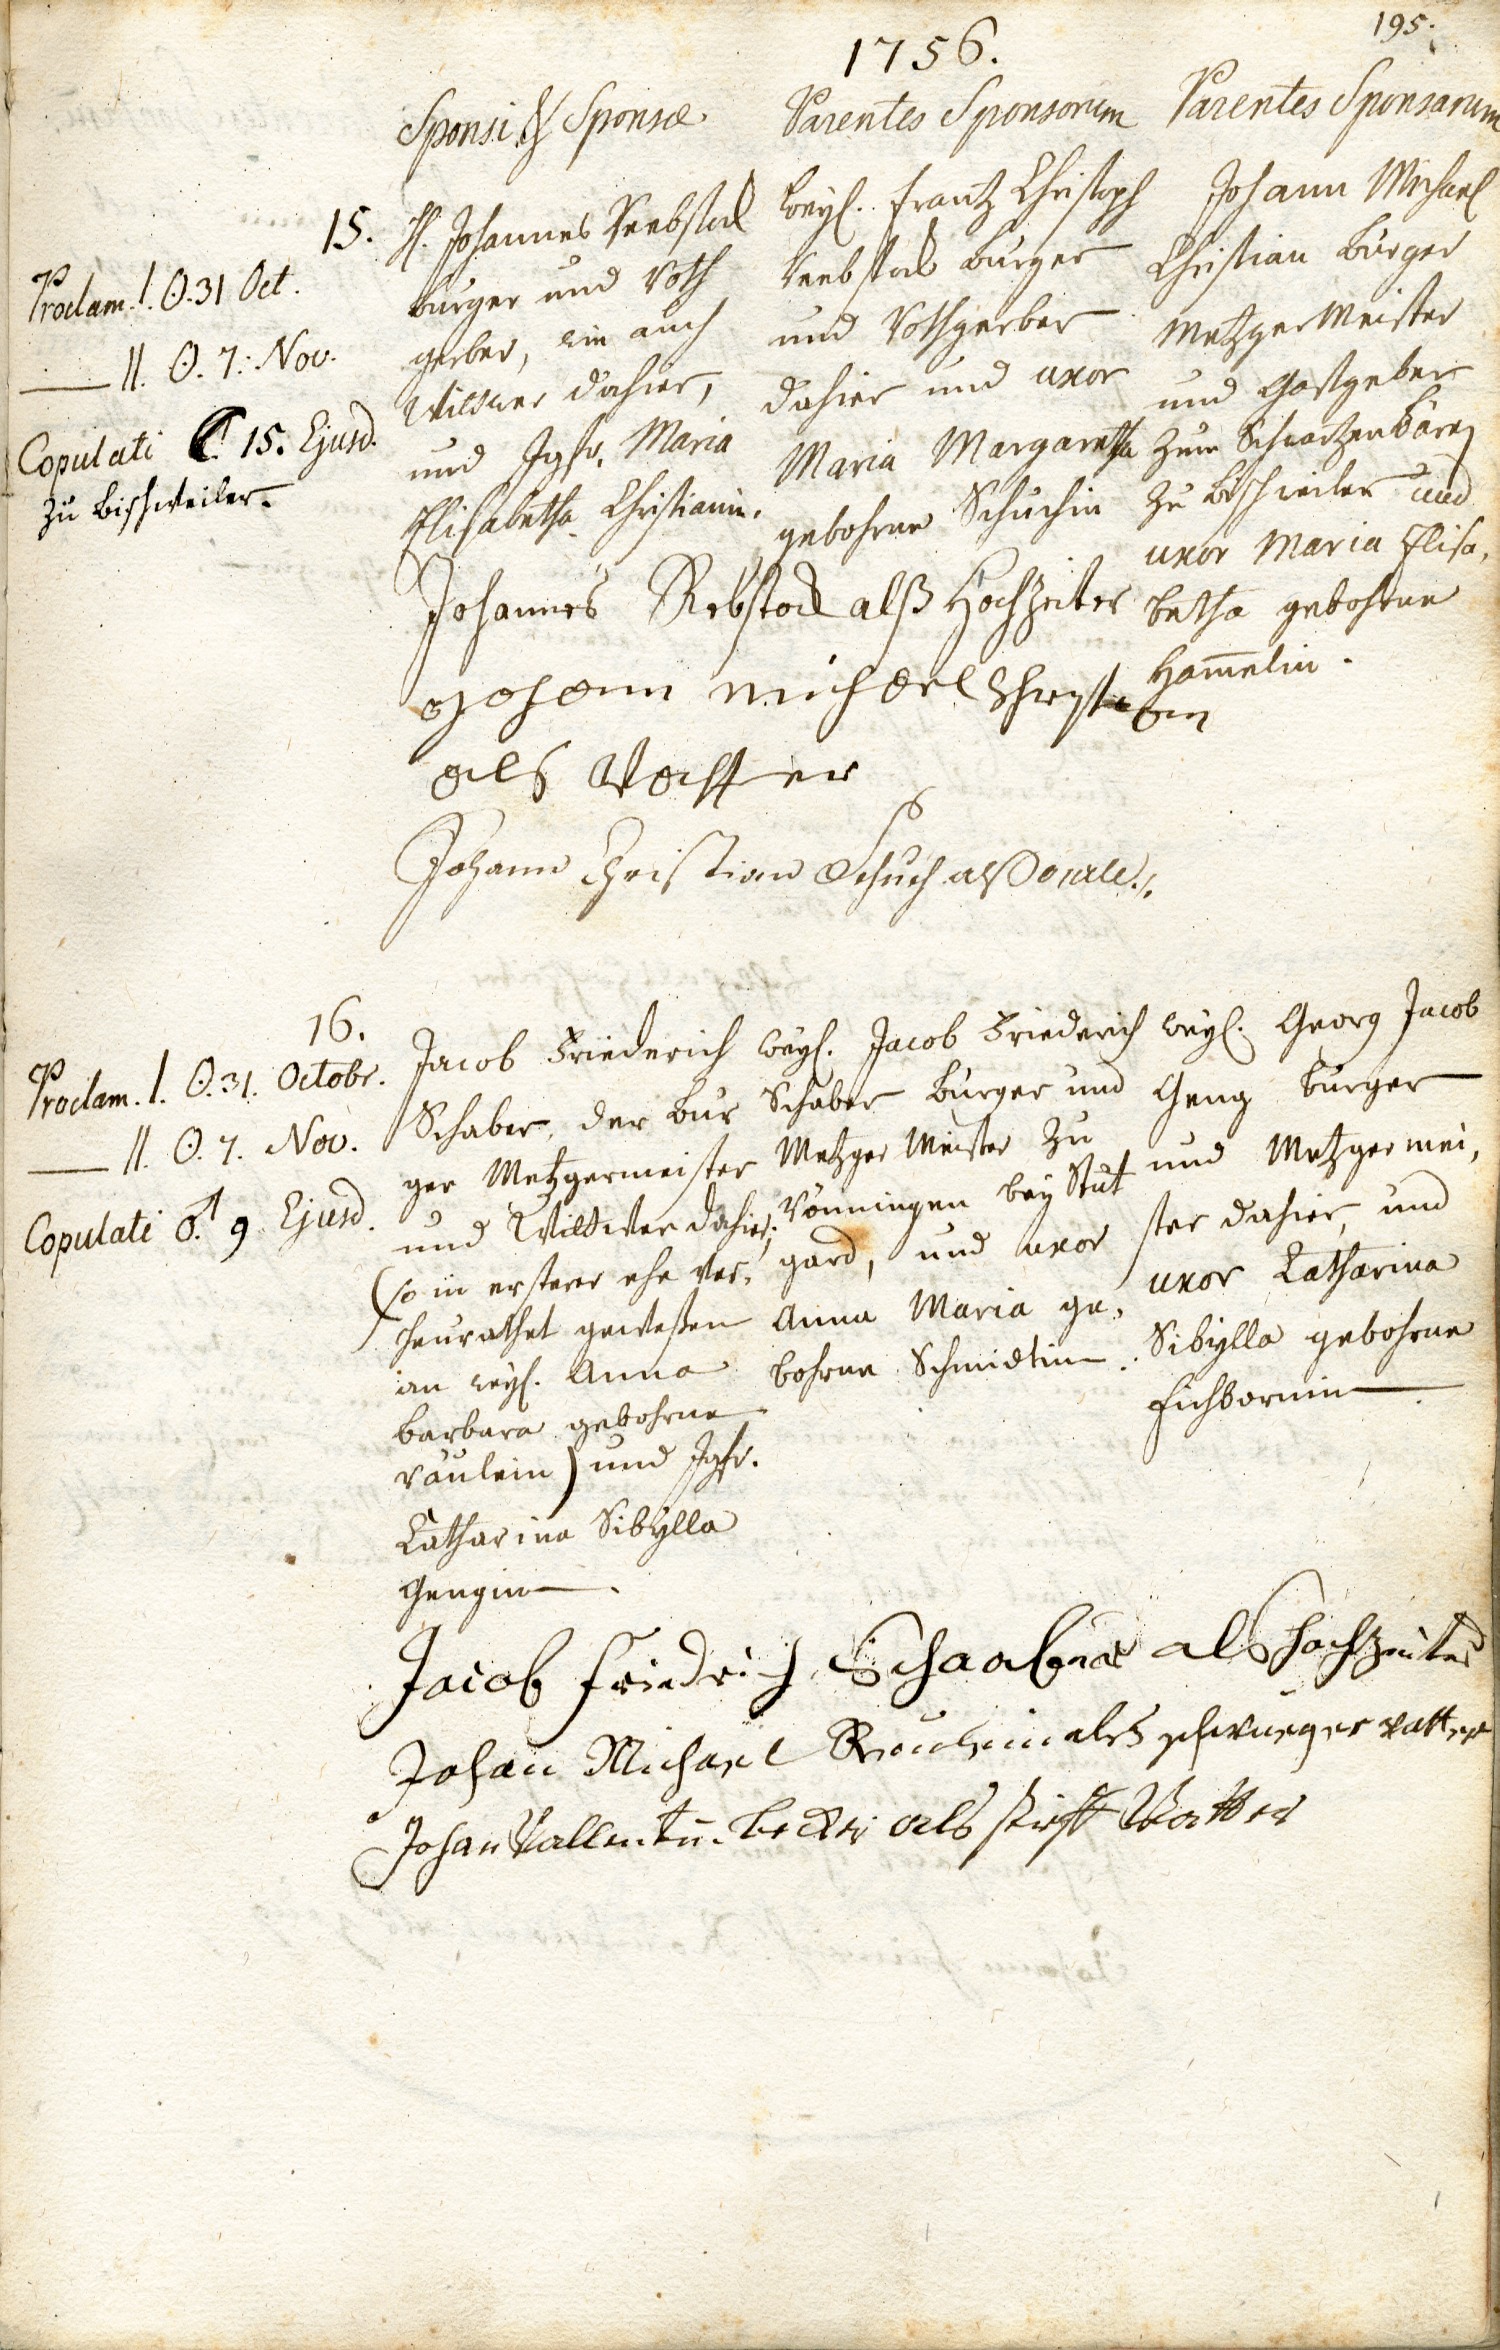 195.
1756.
Sponsi & Sponsæ.
Parentes Sponsorum
Parentes Sponsarum
15.
Proclam. I. ☉. 31 Oct.
II. ☉. 7. Nov.
Copulati ☾. 15. Ejusd.
zu Bischweiler.
H. Johannes Reebstock
burger und Roth
gerber, wie auch
Wittwer dahier,
und Jgfr. Maria
Elisabetha Christianin.
weyl. Frantz Christoph
Reebstock burger
und Rothgerber
dahier und uxor
Maria Margaretha
gebohrne Schuchin
Johann Michael
Christian burger
Metzger Meister
und Gastgeber
zum Schwartzen Bären
zu Bischweiler und
uxor Maria Elisa,
betha gebohrne
Ham̄elin.
Johannes Rebstock alß Hochzeiter
Johann Michael Christian
als Vatter
Johann Christian Schuch alß oncle
16.
Proclam. I. ☉. 31. Octobr.
II. ☉. 7. Nov.
Copulati ♂. 9 Ejusd.
Jacob Friederich
Schaber, der bur
ger Metzgermeister
und Wittwer dahier,
(so in erster ehe ver,
heurathet geweßen
an weyl. Anna
barbara gebohrne
Räulein) und Jgfr.
Catharina Sibylla
Gengin
weyl. Jacob Friederich
Schaber burger und
Metzger Meister zu
Vönningen bey Stut
gard, und uxor
Anna Maria ge,
bohrne Schmidtin.
weyl. Georg Jacob
Geng burger
und Metzgermei,
ster dahier, und
uxor Catharina
Sibylla gebohrne
Eichbornin
Jacob Friedrich Schaaber als Hochzeiter
Johan Michael Reulein als schwieger vatter
Johan Vallentin Becker als stieff Vatter